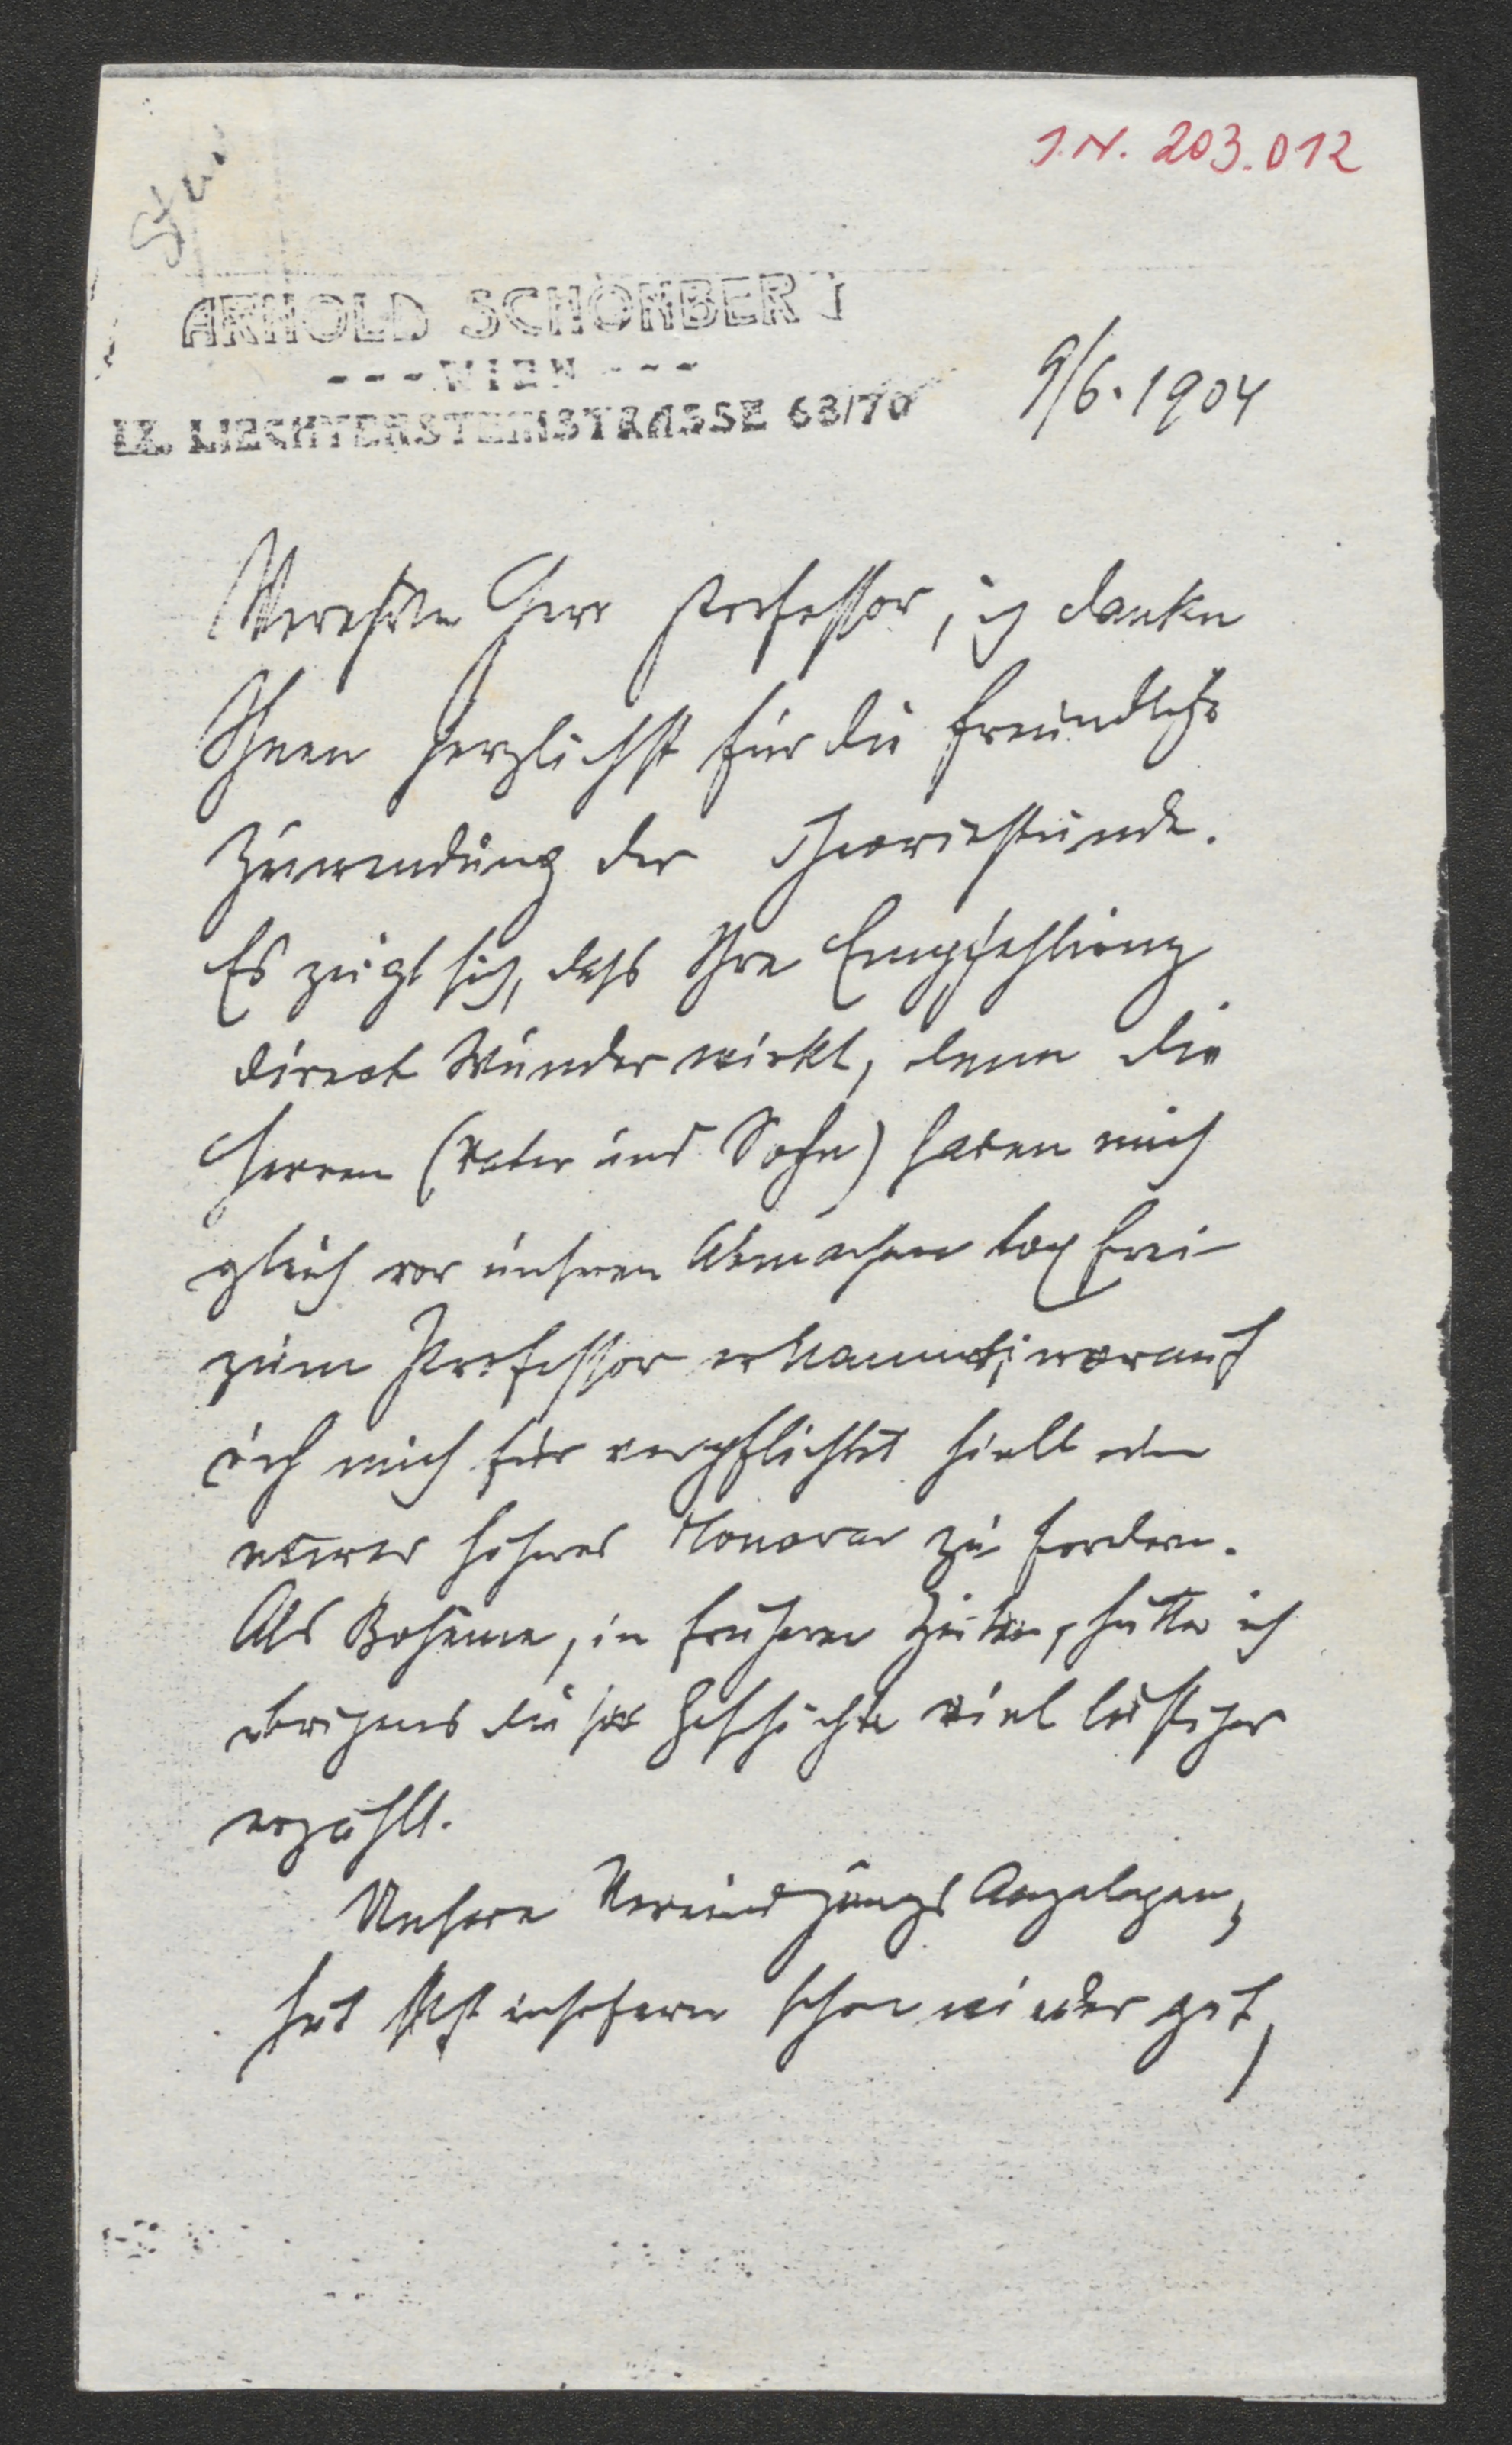 J.N. 203.012
ARNOLD SCHÖNBERG
--- WIEN ---
IX. LIECHTENSTEINSTRASSE 68/70
9/6. 1904
Verehrter Herr Professor, ich danke
Ihnen herzlichst für die freundliche
Zuwendung der Theoriestunde.
Es zeigt sich, dass Ihre Empfehlung
direct Wunder wirkt, denn die
Herren (Vater und Sohn) haben mich
gleich vor unseren Abmachen taxfrei
zum Professor ernannt; worauf
ich mich für verpflichtet hielt ein
etwas höheres Honorar zu fordern.
Als Bohème, in früheren Zeiten, hätte ich
übrigens diese Geschichte viel lustiger
erzählt.
Unsere Vereinigungs Angelegen-
heit ist insofern schon wieder gut,